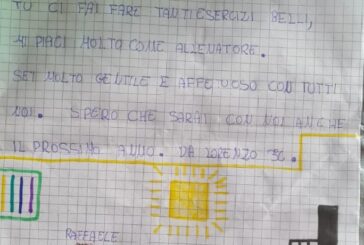 TU CI FAI FARE TANTI ESERCIZI BELLI,
MI PIACI MOLTO COME ALLENATORE.
SEI MOLTO GENTILE E AFFETUOSO CON TUTTI
NOI. SPERO CHE SARAI CON NOI ANCHE
IL PROSSIMO ANNO. DA LORENZO 5C.
RAFFAELE